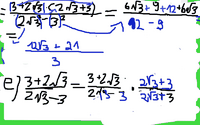 = (3+2√3)·(2√3+3) / (2√3)²-(3)² = 6√3+9+12+6√3 / 12-9
= 12√3+21 / 3
e) 3+2√3 / 2√3-3 = 3+2√3 / 2√3-3 · 2√3+3 / 2√3+3